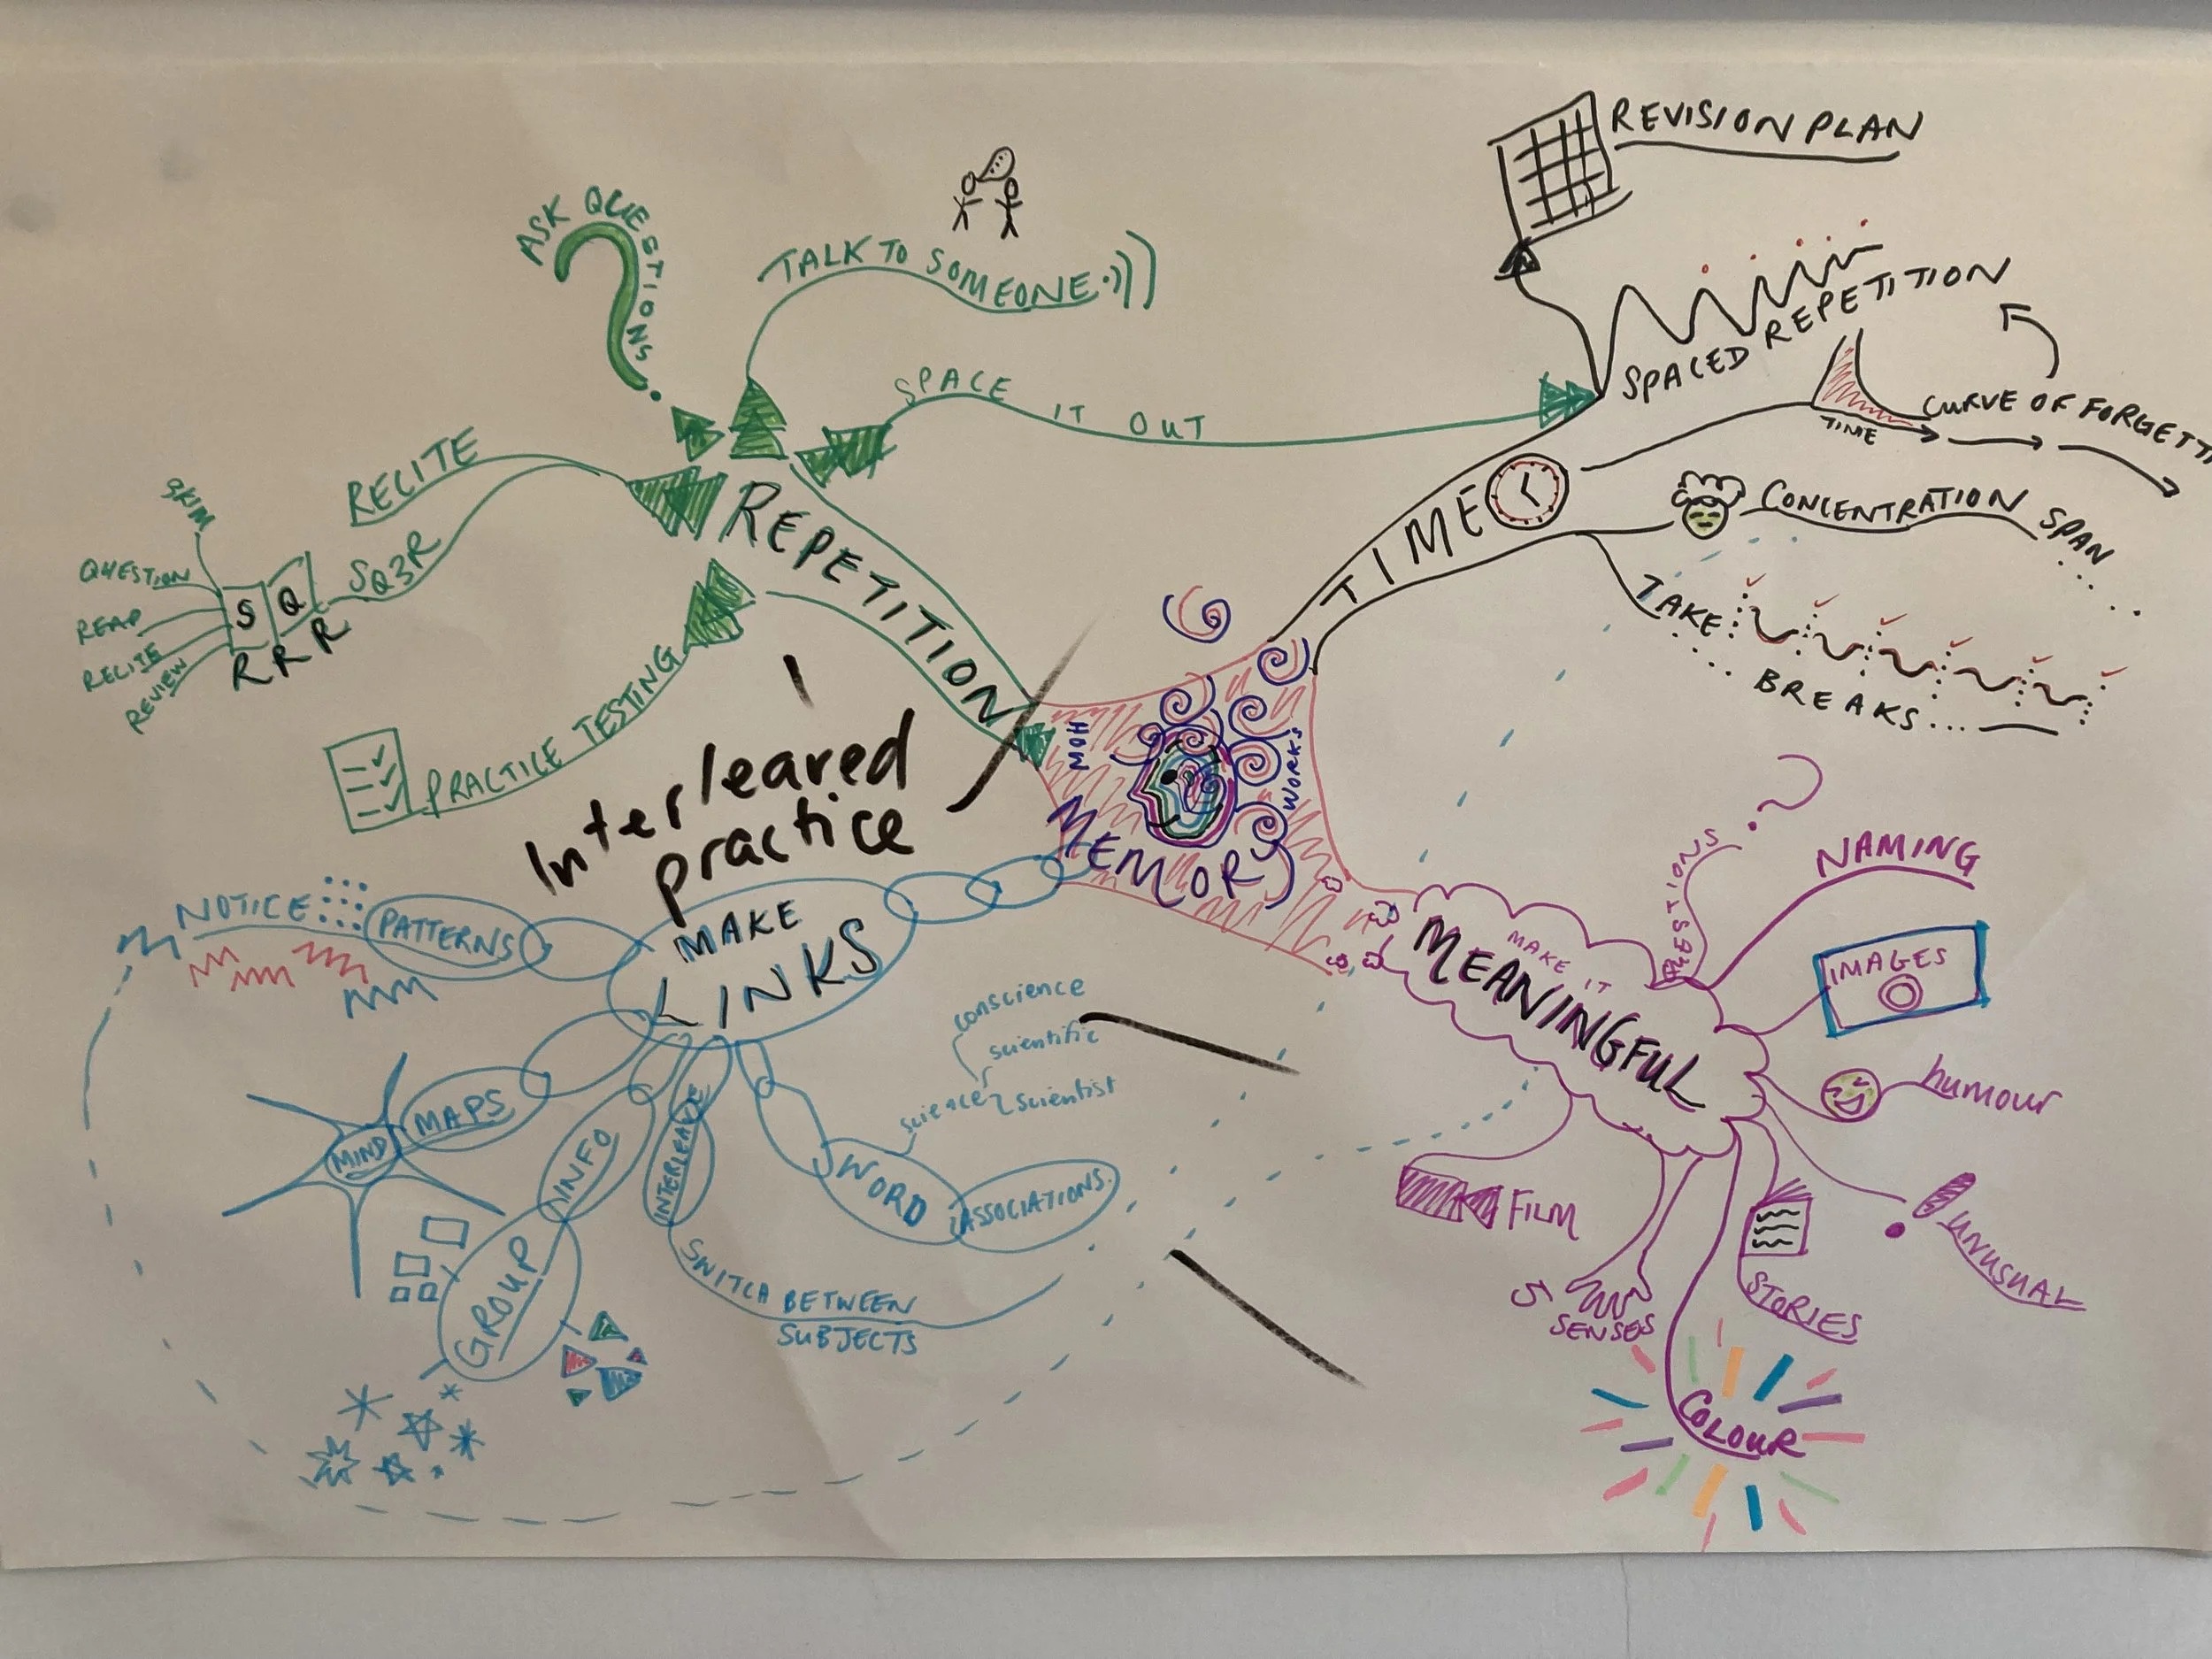 REVISION PLAN
ASK QUESTIONS
TALK TO SOMEONE
SPACED REPETITION
SPACE IT OUT
CURVE OF FORGETTI
TIME
RECITE
SKIM
QUESTION
READ
RECITE
REVIEW
S Q
R R R
SQ3R
REPETITION
PRACTICE TESTING
TIME
CONCENTRATION SPAN
TAKE
BREAKS...
HOW
MEMORY
WORKS
Interleaved
practice
MAKE
LINKS
NOTICE
PATTERNS
MIND
MAPS
GROUP
INFO
INTERLEAVE
SWITCH BETWEEN
SUBJECTS
WORD
ASSOCIATIONS.
conscience
scientific
science
scientist
MAKE IT
MEANINGFUL
QUESTIONS
?
NAMING
IMAGES
humour
UNUSUAL
STORIES
COLOUR
5
SENSES
FILM